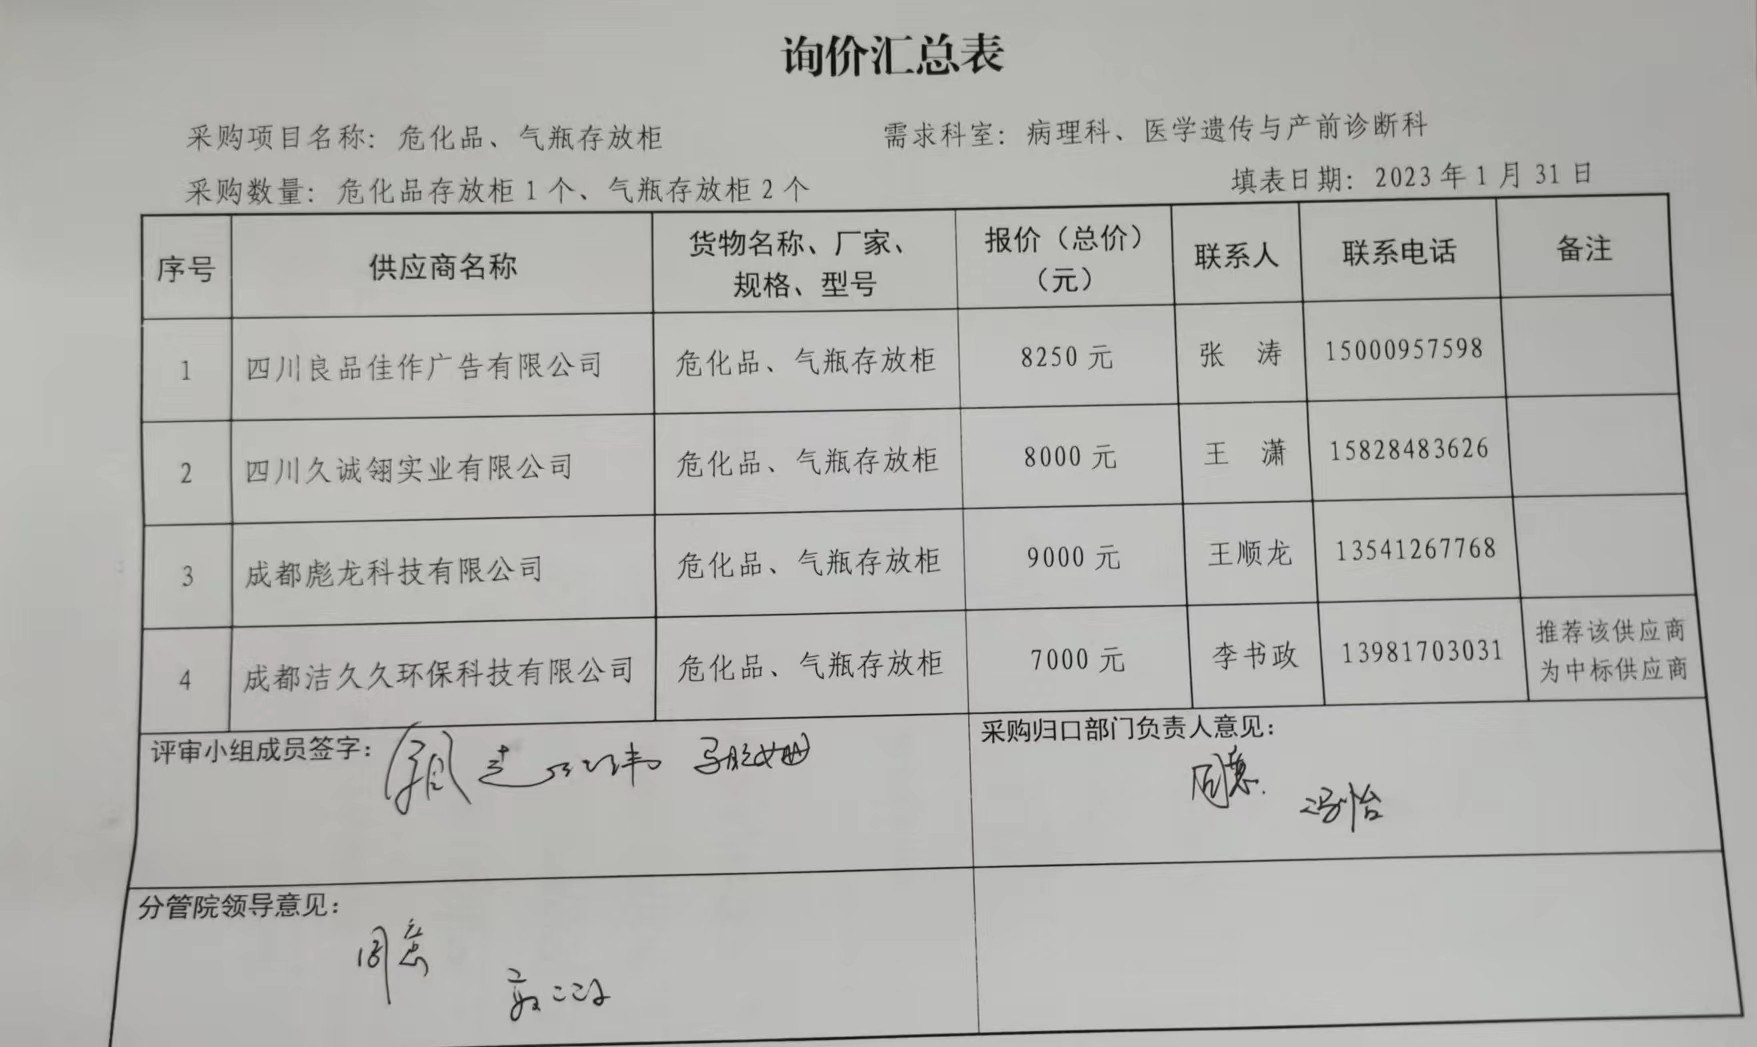 询价汇总表
采购项目名称：危化品、气瓶存放柜 需求科室：病理科、医学遗传与产前诊断科
采购数量：危化品存放柜1个、气瓶存放柜2个 填表日期：2023年1月31日
序号 供应商名称 货物名称、厂家、规格、型号 报价（总价）（元） 联系人 联系电话 备注
1 四川良品佳作广告有限公司 危化品、气瓶存放柜 8250元 张涛 15000957598
2 四川久诚翎实业有限公司 危化品、气瓶存放柜 8000元 王潇 15828483626
3 成都彪龙科技有限公司 危化品、气瓶存放柜 9000元 王顺龙 13541267768
4 成都洁久久环保科技有限公司 危化品、气瓶存放柜 7000元 李书政 13981703031 推荐该供应商为中标供应商
评审小组成员签字：
采购归口部门负责人意见：
同意.
冯怡
分管院领导意见：
同意